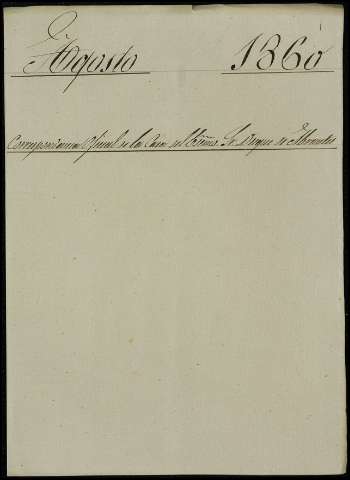 Agosto 1860
Correspondencia Oficial de la Casa del Excmo. Sr. Duque de Abrantes